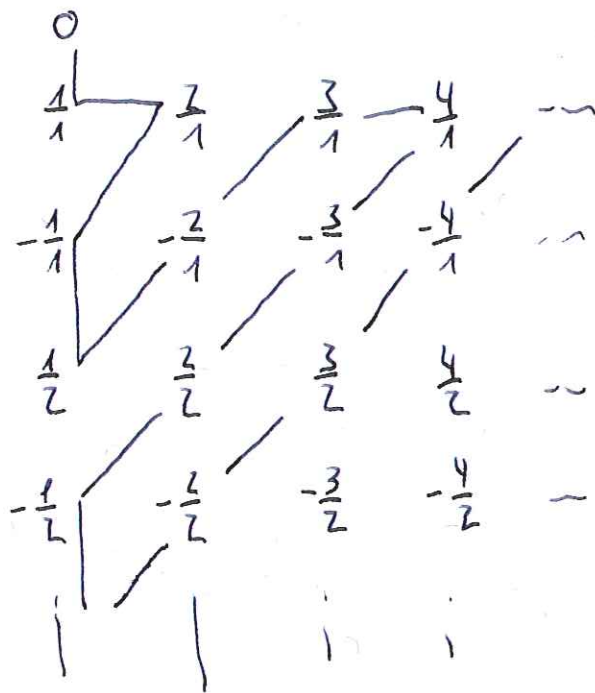 0
1/1 2/1 3/1 4/1 ---
-1/1 -2/1 -3/1 -4/1 ---
1/2 2/2 3/2 4/2 ---
-1/2 -2/2 -3/2 -4/2 ---